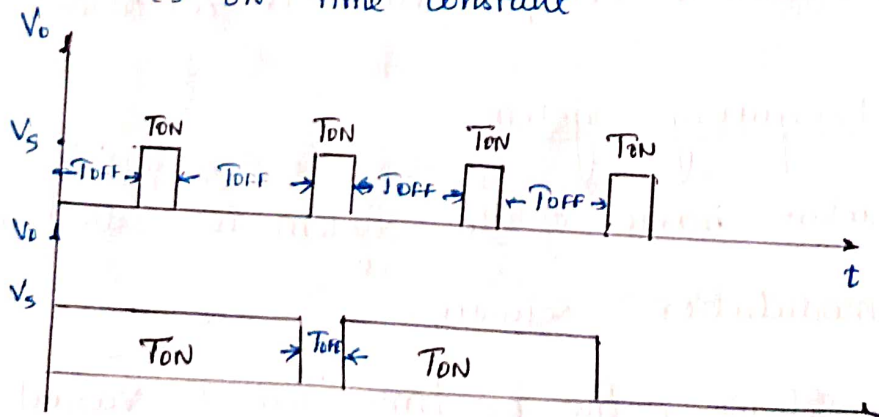 ON Time constant
V₀
TON TON TON TON
Vs
TOFF TOFF TOFF TOFF
V₀
t
Vs
TON TOFF TON